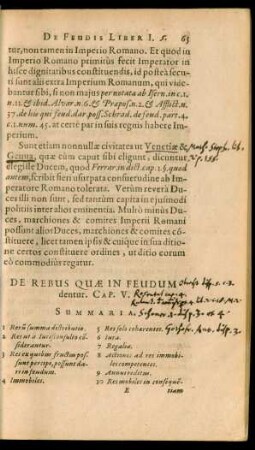 DE FEUDIS LIBER I. 65
tur, non tamen in Imperio Romano. Et quod in
Imperio Romano primitùs fecit Imperator in
hisce dignitatibus constituendis, id posteà secu
ti sunt alij extra Imperium Romanum, qui vide
bantur sibi, si non majus
n. 11. & ibid. Alvar. n. 6. & Præpos. n. 2. & Afflict. n.
37. de his qui feud. dar. poss. Schrad. de feud. part. 4.
c. 1. num. 45. at certè par in suis regnis habere Im-
perium.
Sunt etiam nonnullæ civitates ut Venetiæ &
Genua, quæ cùm caput sibi eligunt, dicuntur
elegisse Ducem, quod Ferrar. in dict. cap. 1. §. 6. quod
autem, scribit fieri usurpata consuetudine ab Im-
peratore Romano tolerata. Verùm reverà Du-
ces illi non sunt, sed tantùm capita in ejusmodi
politijs inter alios eminentia. Multò minùs Du-
ces, marchiones & comites Imperii Romani
possunt alios Duces, marchiones & comites cõ-
stituere, licet tamen ipsis & cuique in sua ditio-
ne certos constituere ordines, ut ditio eorum
eò commodiùs regatur.
DE REBUS QUÆ IN FEUDUM
dentur. CAP. V.
SUMMARIA.
1 Rerũ summa distributio.
2 Res ut à Iurisconsultis cõ-
siderantur.
3 Res ex quibus fructus pos-
sunt percipi, possunt da-
ri in feudum.
4 Immobiles.
5 Res solo cohærentes.
6 Iura.
7 Regaliæ.
8 Actiones ad res immobi-
les competentes.
9 Annui reditus.
10 Res mobiles in consequẽ-
E